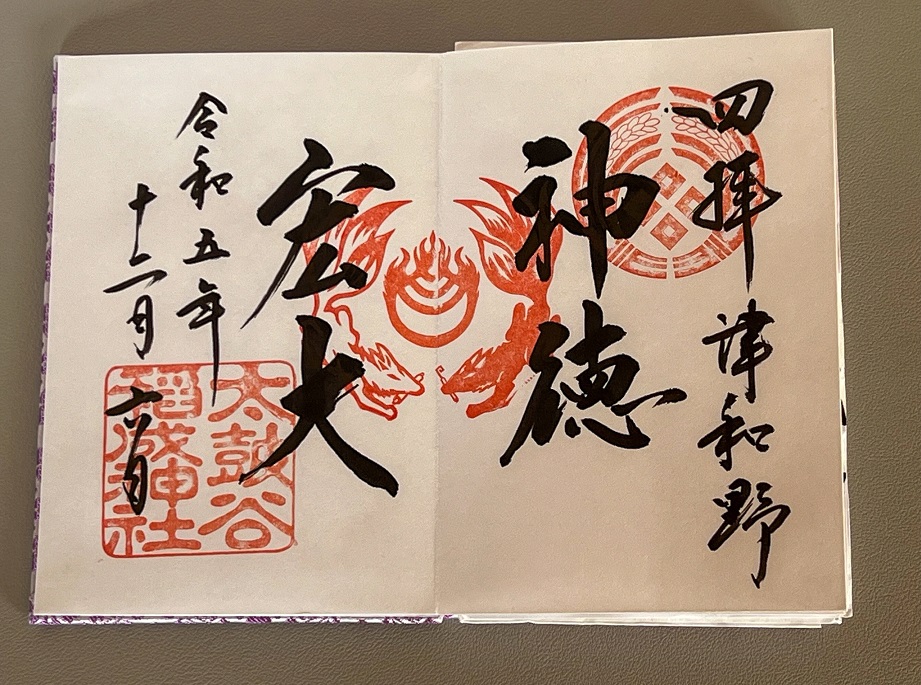 四拝 津和野
神徳
宏大
令和五年
十二月六日
太皷谷
稲成神社